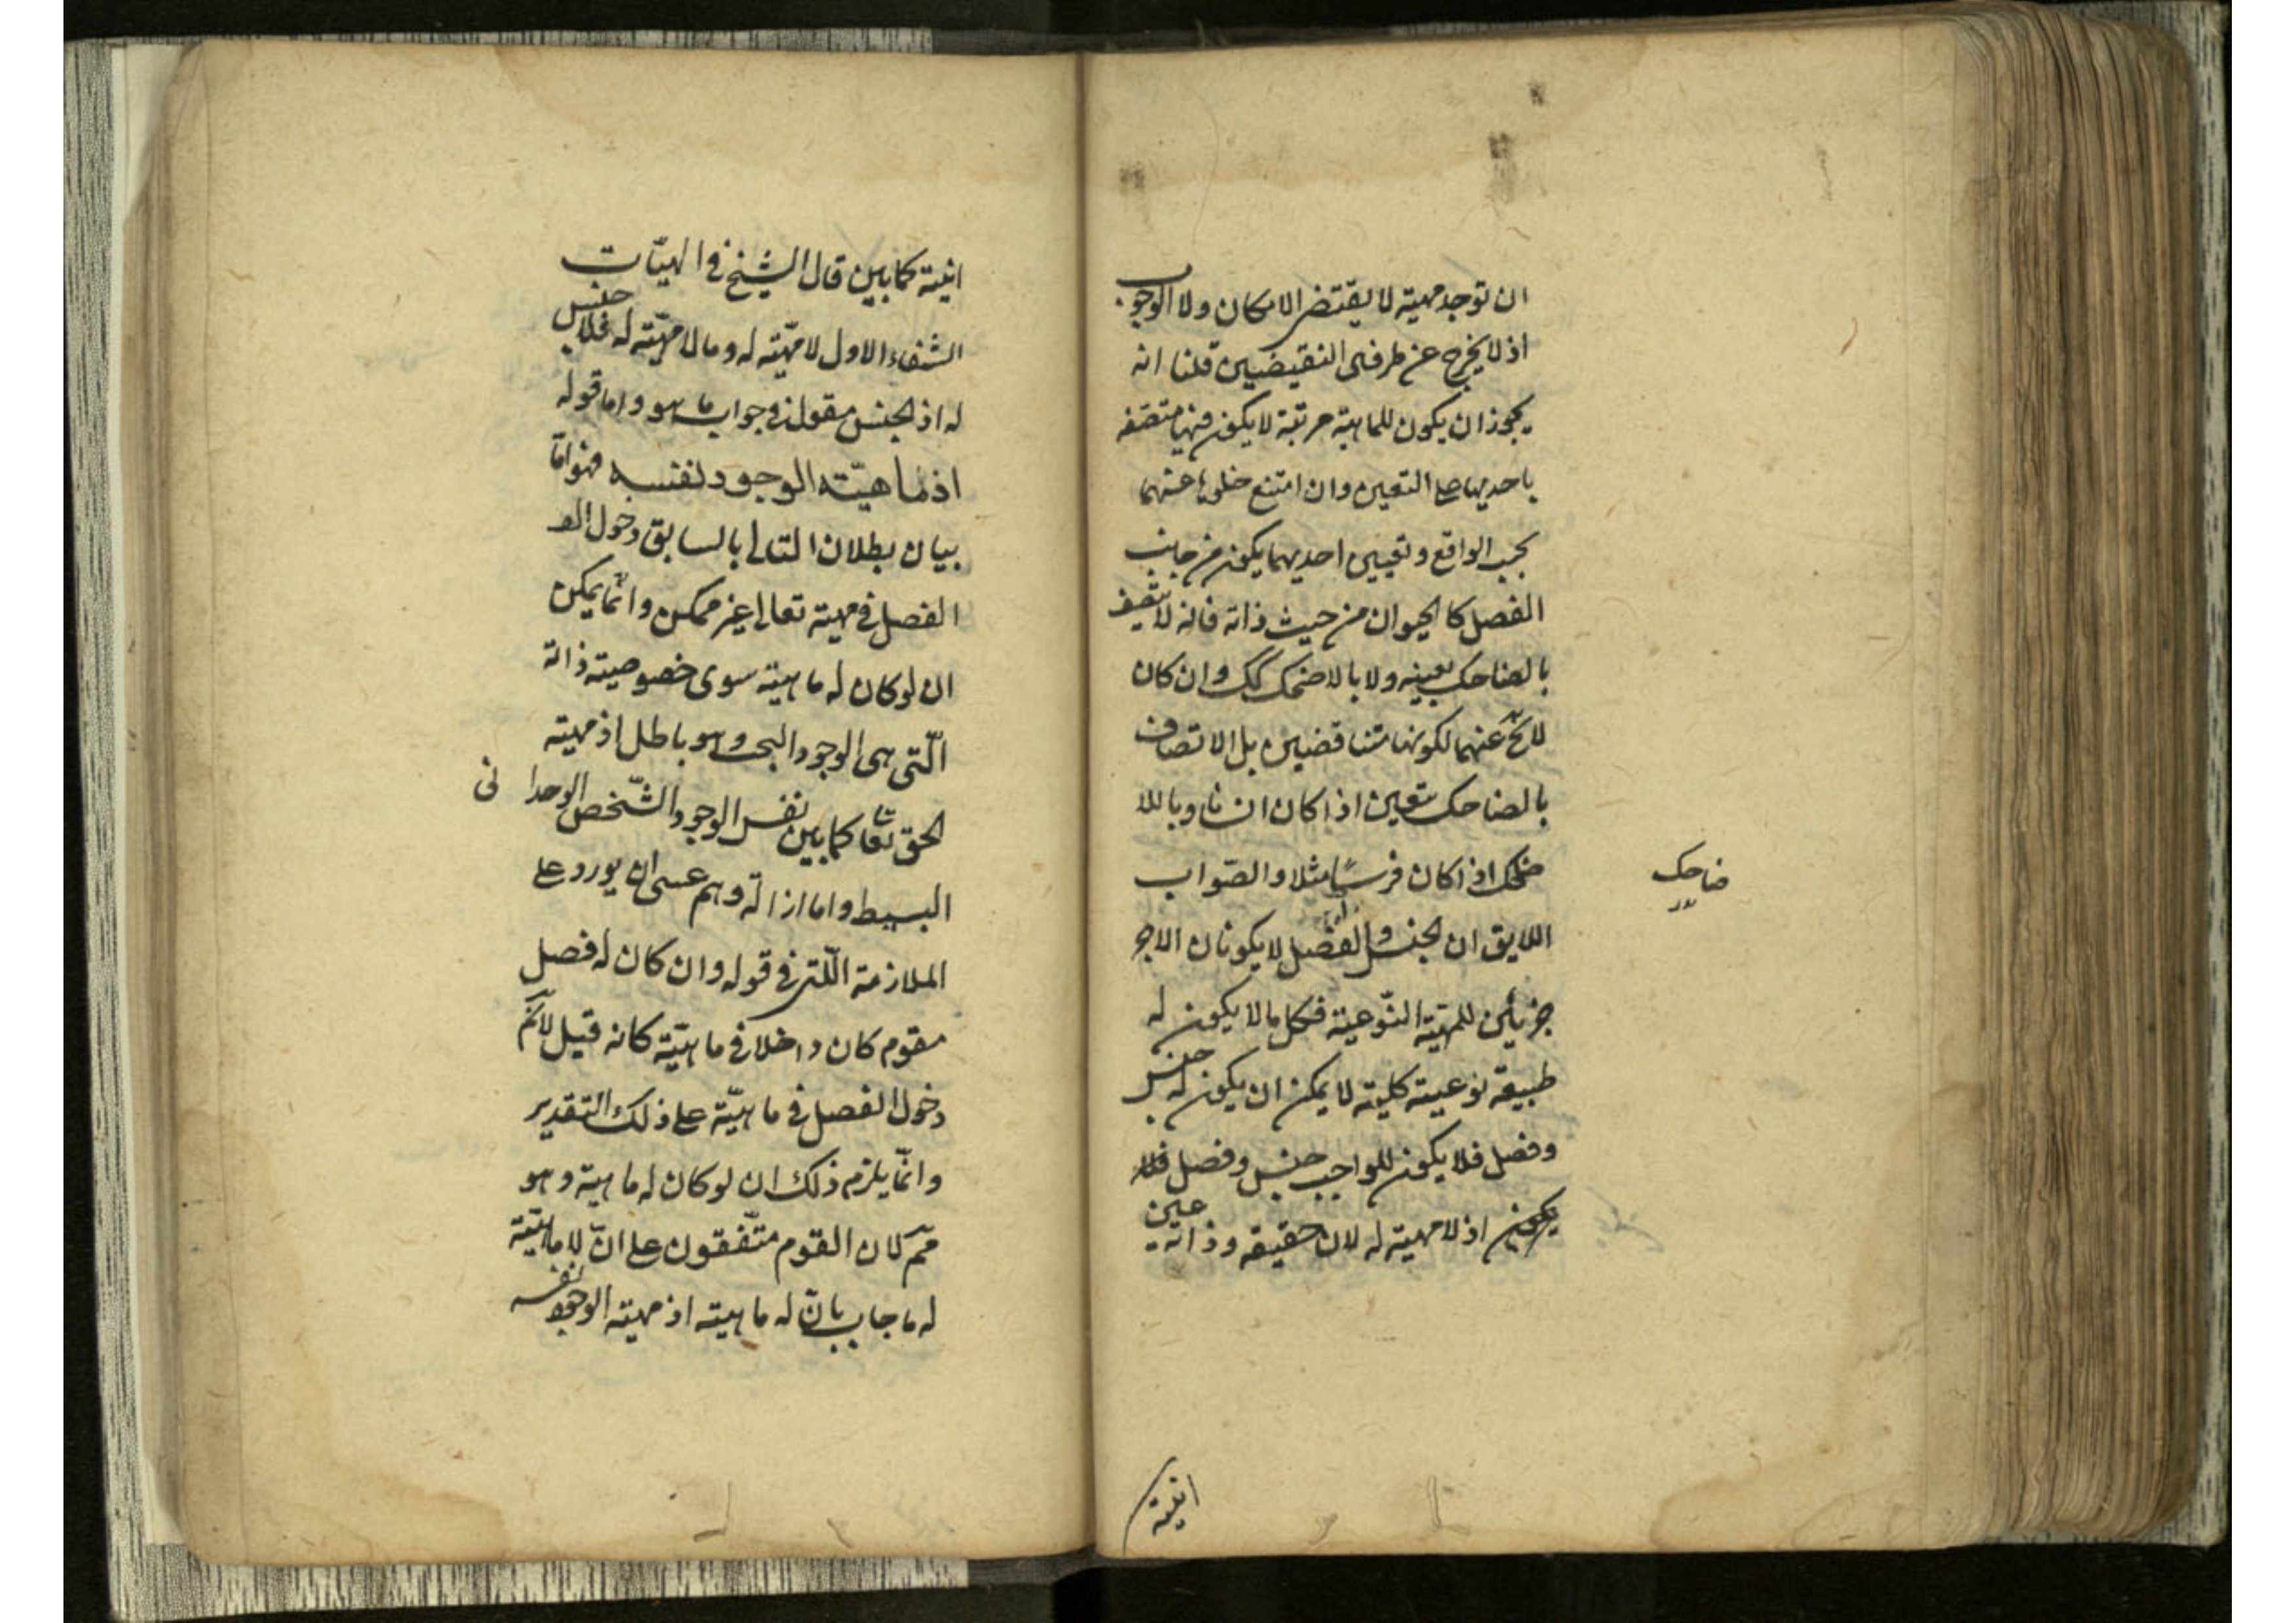 ان توجد مهية لا يقتضى الامكان ولا الوجوب
اذ لا يخرج عن طرفى النقيضين قلنا انه
يجوز ان يكون للماهية مرتبة لا يكون فيها متصفه
باحديهما على التعين وان امتنع خلوها عنهما
بحسب الواقع وتعيين احديهما يكون من جانب
الفصل كالحيوان من حيث ذاته فانه لا يتصف
بالضاحك بعينه ولا بالاضحك كك وان كان
لا يخ عنهما لكونهما متناقضين بل الاتصاف
بالضاحك يتعين اذا كان انسانا وباللا
ضحك اذا كان فرسًا مثلا والصّواب
ضاحك
اللايق ان الجنس والفصل لا يكونان الا جز
جزئين للمهيّة النّوعيّة فكل ما لا يكون له
طبيعة نوعية كلية لا يمكن ان يكون له جنس
وفصل فلا يكون للواجب جنس وفصل فلا
يكون اذ لا مهية له لان حقيقه وذاته عين
انيته
انيته كما بين قال الشيخ فى الهيّات
الشفاء الاول لا مهّية له وما لا مهّية له فلا جنس
له اذ الجنس مقول فى جواب ما هو واما قوله
اذ ماهيّته الوجود لنفسه فهو امّا
بيان بطلان التالى بالسابق دخول
الفصل فى مهية تعالى غير ممكن وانّما يمكن
ان لو كان له ماهية سوى خصوصية ذاته
الّتى هى الوجود البحت وهو باطل اذ مهية
الحق تعا كما بين نفس الوجود الشّخص الوحدانى
البسيط واما ازالة وهم عسى ان يورد على
الملازمة الّتى فى قوله وان كان له فصل
مقوم كان داخلا فى ماهيّته كانه قيل لا نم
دخول الفصل فى ماهيّة على ذلك التقدير
وانّما يلزم ذلك ان لو كان له ماهية وهو
مم لان القوم متّفقون على انّ لا ماهيّة
له فاجاب بانّ له ماهية اذ مهية الوجود نفسه